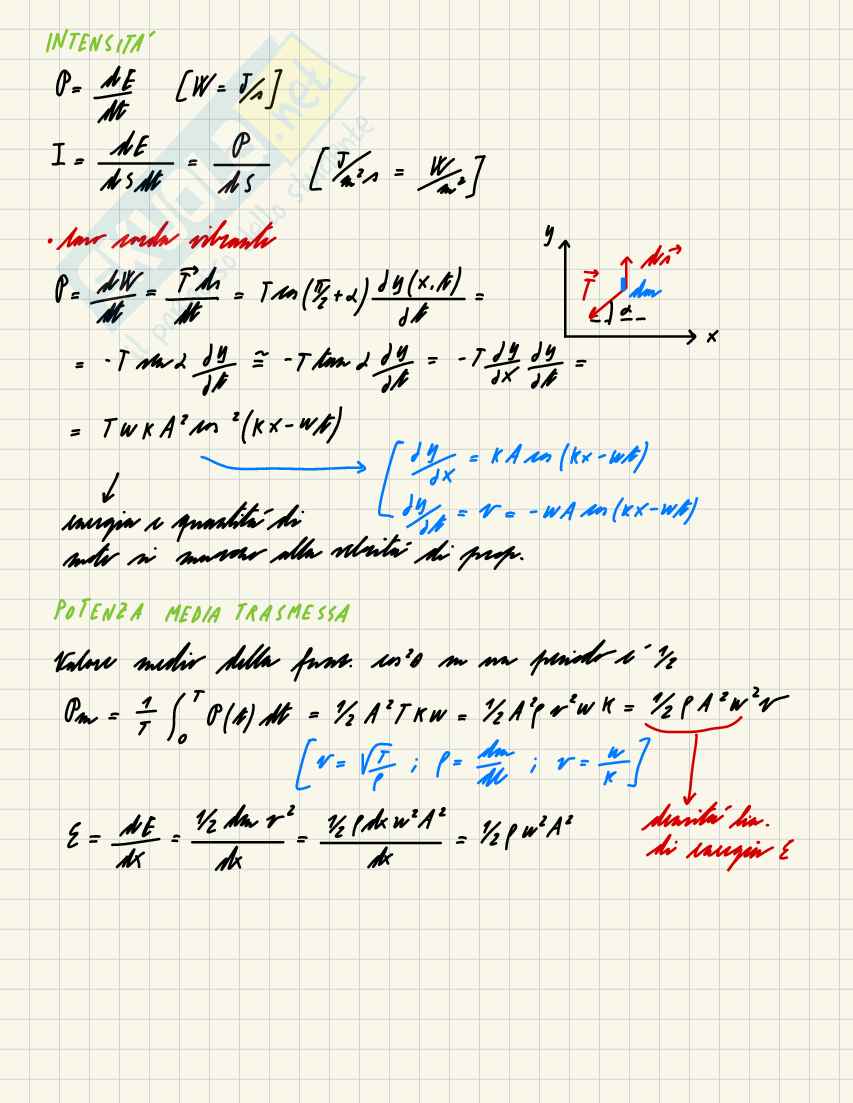 INTENSITÁ
P = dE/dt [W = J/s]
I = dE/dSdt = P/dS [J/m²s = W/m²]
• caso corda vibrante
P = dW/dt = T⃗ ds/dt = T cos(π/2 + α) ∂y(x,t)/∂t =
y
ds⃗
T⃗
dm
α
x
= -T sen α ∂y/∂t ≅ -T tan α ∂y/∂t = -T ∂y/∂x ∂y/∂t =
= T w K A² cos²(Kx - wt)
[ ∂y/∂x = K A cos (Kx - wt)
∂y/∂t = v = -wA cos(Kx - wt)
energia e quantitá di
moto si muovono alla velocitá di prop.
POTENZA MEDIA TRASMESSA
Valore medio della funz. cos²θ su un periodo é 1/2
Pm = 1/T ∫₀ᵀ P(t) dt = 1/2 A² T K w = 1/2 A² ρ v² w K = 1/2 ρ A² w² v
[v = √T/ρ ; ρ = dm/dl ; v = w/K]
ε = dE/dx = 1/2 dm v²/dx = 1/2 ρ dx w² A²/dx = 1/2 ρ w² A²
densitá lin.
di energia ε
SKUOLA.net